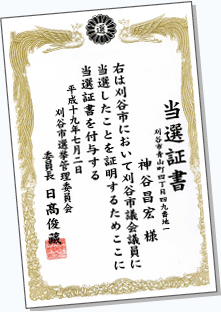 選
当選証書
刈谷市青山町四丁目四九番地一
神谷昌宏 様
右は刈谷市において刈谷市議会議員に
当選したことを証明するためここに
当選証書を付与する
平成十九年七月二日
刈谷市選挙管理委員会
委員長 日高俊蔵